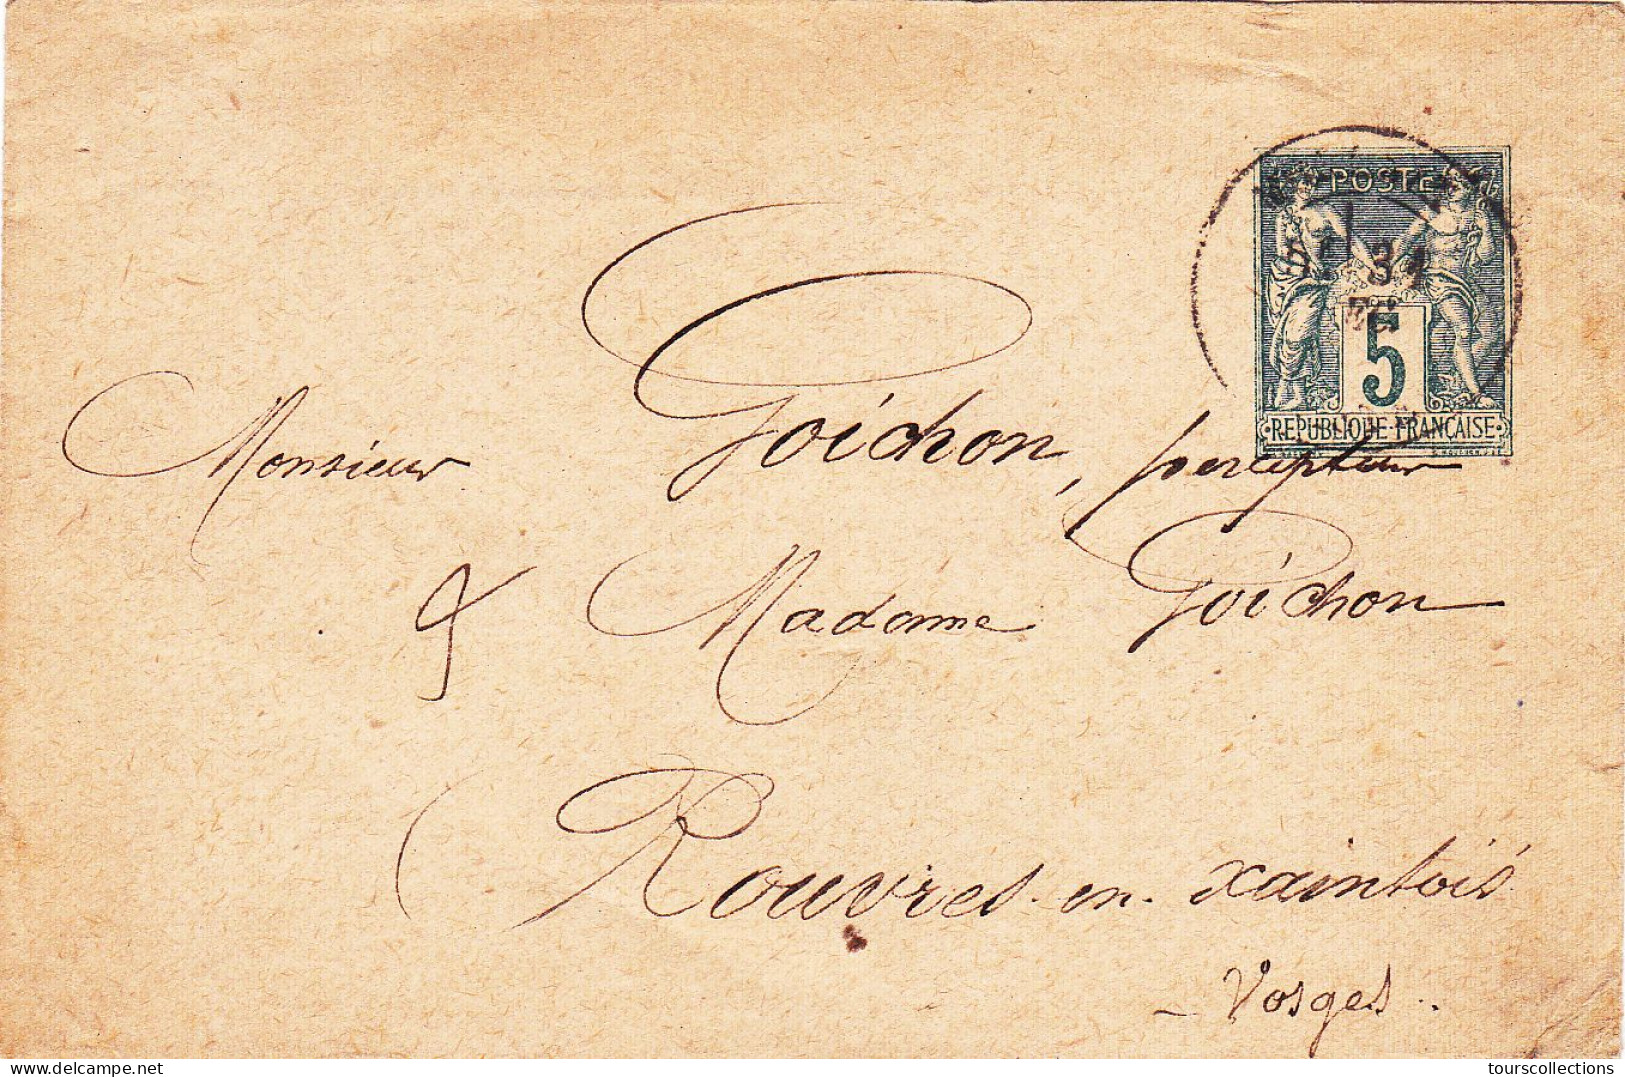 POSTE
31
5
REPUBLIQUE FRANÇAISE
Monsieur Poichon, percepteur
& Madame Poichon
Rouvres-en-xaintois
- Vosges.
delcampe.net
tourscollections